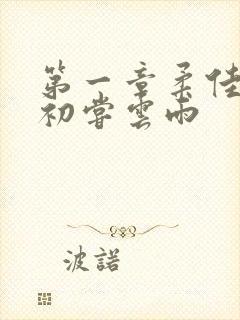 第一章柔佳
初尝雲雨
波諾